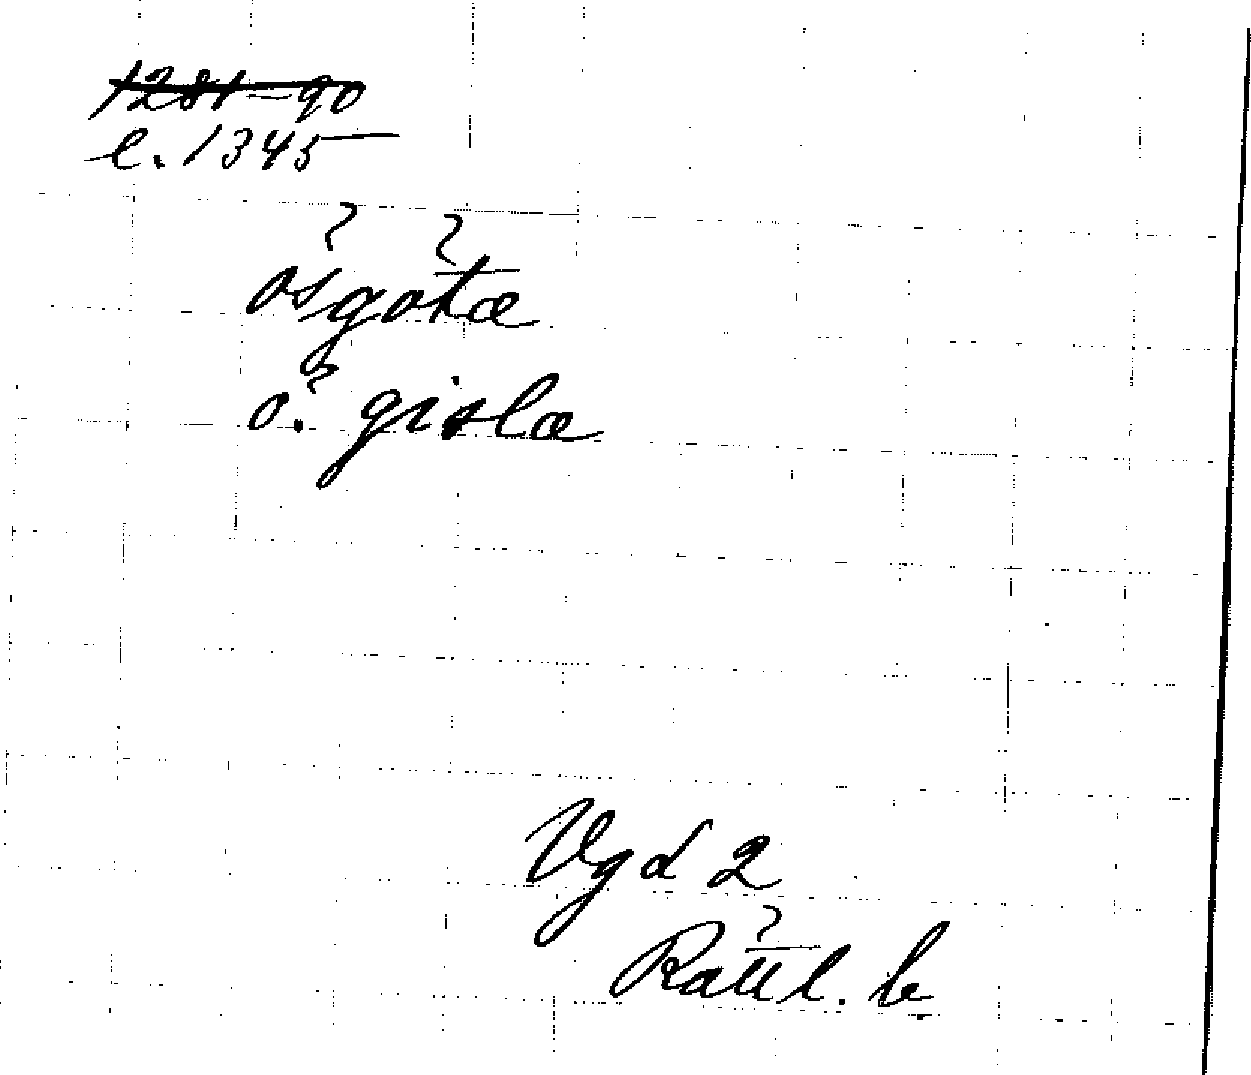 1281–90
c. 1345
osgotæ
o. gislæ
Vgd 2
Rättl. b